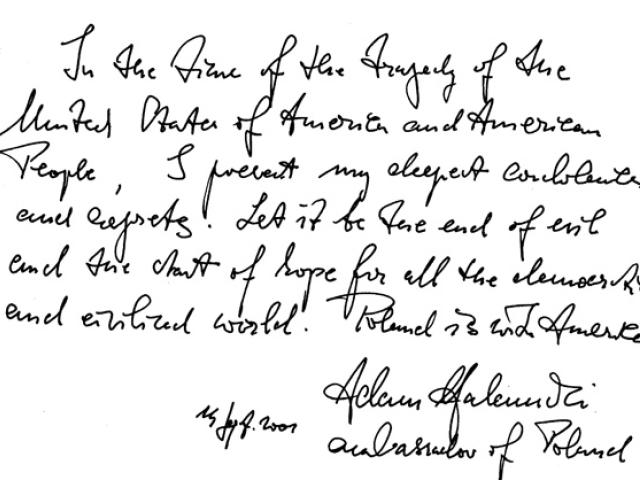 In the time of the tragedy of the
United States of America and American
People, I present my deepest condolences
and regrets. Let it be the end of evil
and the start of hope for all the democratic
and civilized world. Poland is with America
Adam Halamski
Sept. 2001
ambassador of Poland